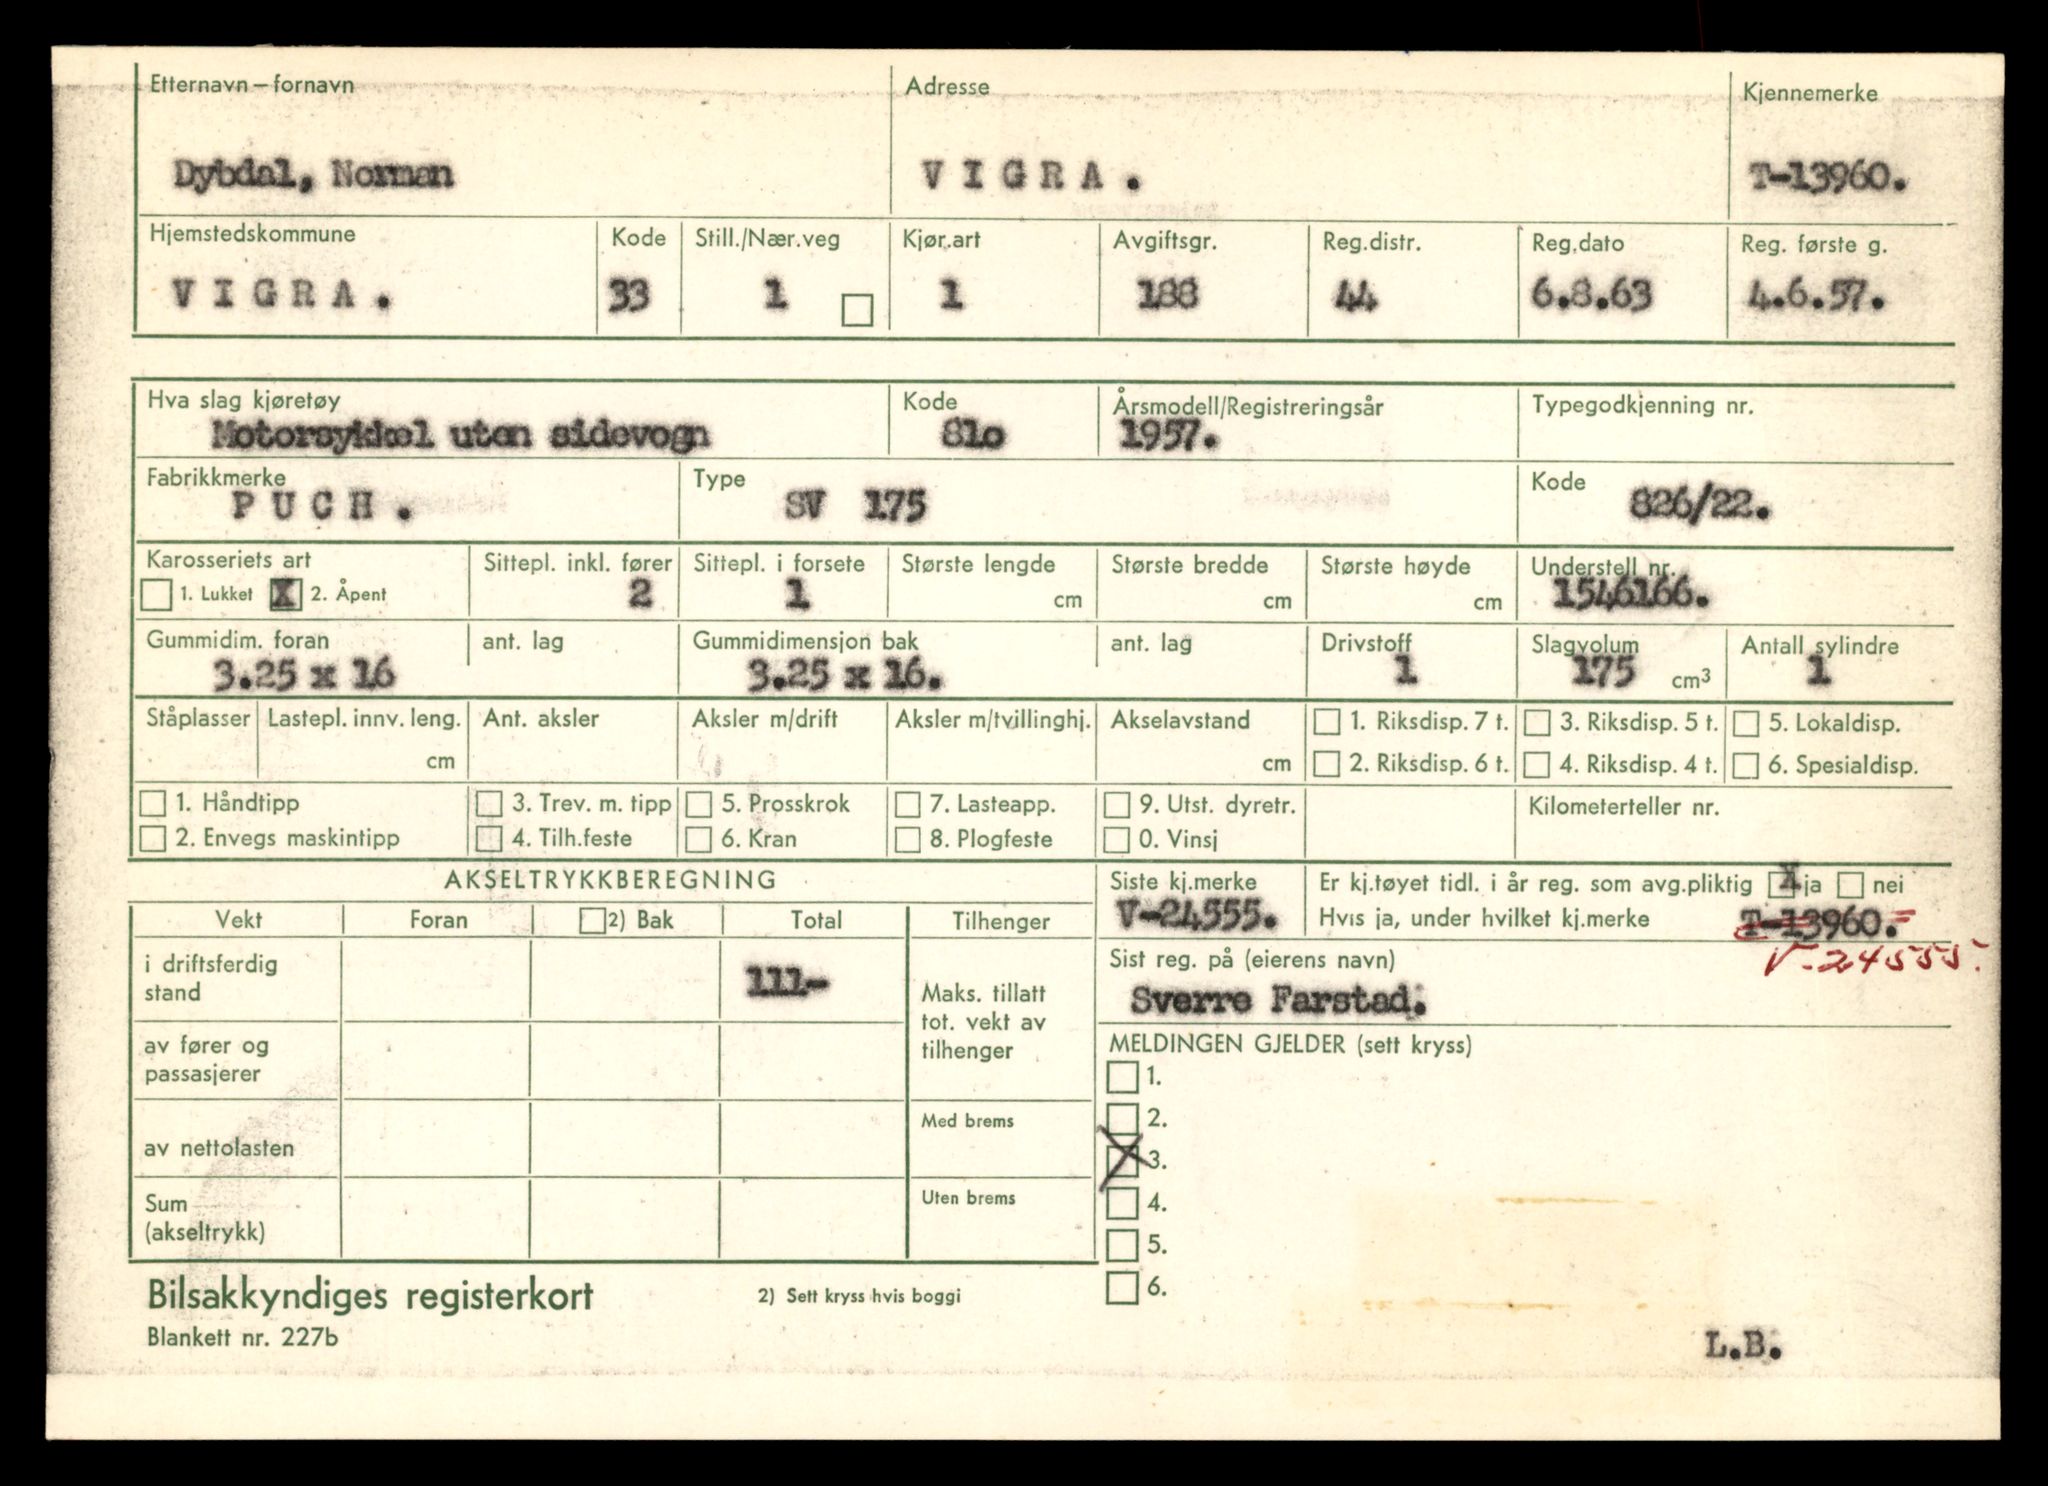 Etternavn – fornavn Adresse Kjennemerke
Dybdal, Norman VIGRA. T-13960.
Hjemstedskommune Kode Still./Nær.veg Kjør.art Avgiftsgr. Reg.distr. Reg.dato Reg. første g.
VIGRA. 33 1 1 188 44 6.8.63 4.6.57.
Hva slag kjøretøy Kode Årsmodell/Registreringsår Typegodkjenning nr.
Motorsykkel uten sidevogn 81o 1957.
Fabrikkmerke Type Kode
PUCH. SV 175 826/22.
Karosseriets art Sittepl. inkl. fører Sittepl. i forsete Største lengde Største bredde Største høyde Understell nr.
1. Lukket X 2. Åpent 2 1 cm cm cm 1546166.
Gummidim. foran ant. lag Gummidimensjon bak ant. lag Drivstoff Slagvolum Antall sylindre
3.25 x 16 3.25 x 16. 1 175 cm³ 1
Ståplasser Lastepl. innv. leng. Ant. aksler Aksler m/drift Aksler m/tvillinghj. Akselavstand 1. Riksdisp. 7 t. 3. Riksdisp. 5 t. 5. Lokaldisp.
cm cm 2. Riksdisp. 6 t. 4. Riksdisp. 4 t. 6. Spesialdisp.
1. Håndtipp 3. Trev. m. tipp 5. Prosskrok 7. Lasteapp. 9. Utst. dyretr. Kilometerteller nr.
2. Envegs maskintipp 4. Tilh.feste 6. Kran 8. Plogfeste 0. Vinsj
AKSELTRYKKBEREGNING Siste kj.merke Er kj.tøyet tidl. i år reg. som avg.pliktig X ja nei
V-24555. Hvis ja, under hvilket kj.merke T-13960.
Vekt Foran 2) Bak Total Tilhenger
V-24555.
i driftsferdig Sist reg. på (eierens navn)
stand 111- Maks. tillatt Sverre Farstad.
tot. vekt av
av fører og MELDINGEN GJELDER (sett kryss)
tilhenger
passasjerer 1.
Med brems 2.
av nettolasten X 3.
Sum Uten brems 4.
(akseltrykk) 5.
Bilsakkyndiges registerkort 2) Sett kryss hvis boggi 6.
Blankett nr. 227b L.B.